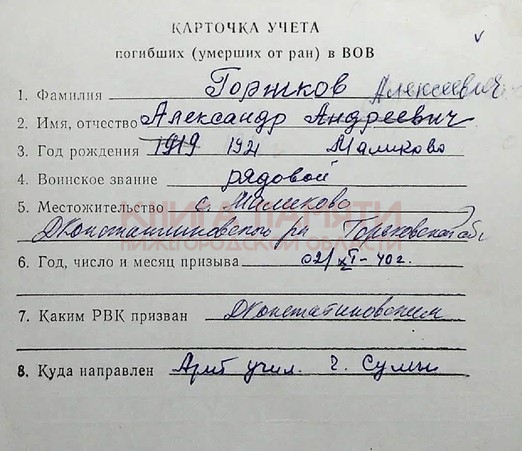 КАРТОЧКА УЧЕТА
погибших (умерших от ран) в ВОВ
1. Фамилия Горшков Алексеевич
2. Имя, отчество Александр Андреевич
3. Год рождения 1919 1921 Маликово
4. Воинское звание рядовой
5. Местожительство с. Маликово
ДКонстантиновского р-н Горьковской обл
КНИГА ПАМЯТИ
НИЖЕГОРОДСКОЙ ОБЛАСТИ
6. Год, число и месяц призыва 02/XI-40г.
7. Каким РВК призван ДКонстатиновским
8. Куда направлен Арт учил. г. Сумы